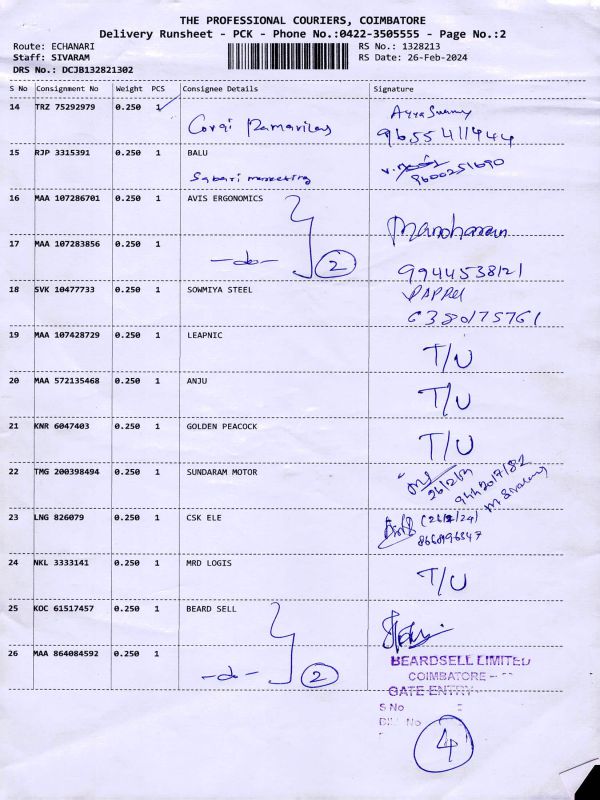 THE PROFESSIONAL COURIERS, COIMBATORE
Delivery Runsheet - PCK - Phone No.:0422-3505555 - Page No.:2
Route: ECHANARI RS No.: 1328213
Staff: SIVARAM RS Date: 26-Feb-2024
DRS No.: DCJB132821302
S No Consignment No Weight PCS Consignee Details Signature
14 TRZ 75292979 0.250 1
9655411444
15 RJP 3315391 0.250 1 BALU
Sabari marketing 9600251690
16 MAA 107286701 0.250 1 AVIS ERGONOMICS
Manoharan
17 MAA 107283856 0.250 1
-do- 2 9944538121
18 SVK 10477733 0.250 1 SOWMIYA STEEL
6380175761
19 MAA 107428729 0.250 1 LEAPNIC
T/U
20 MAA 572135468 0.250 1 ANJU
T/U
21 KNR 6047403 0.250 1 GOLDEN PEACOCK
T/U
22 TMG 200398494 0.250 1 SUNDARAM MOTOR
23 LNG 826079 0.250 1 CSK ELE
24 NKL 3333141 0.250 1 MRD LOGIS
T/U
25 KOC 61517457 0.250 1 BEARD SELL
26 MAA 864084592 0.250 1
-do- 2
BEARDSELL LIMITED
COIMBATORE
GATE ENTRY
S No
4